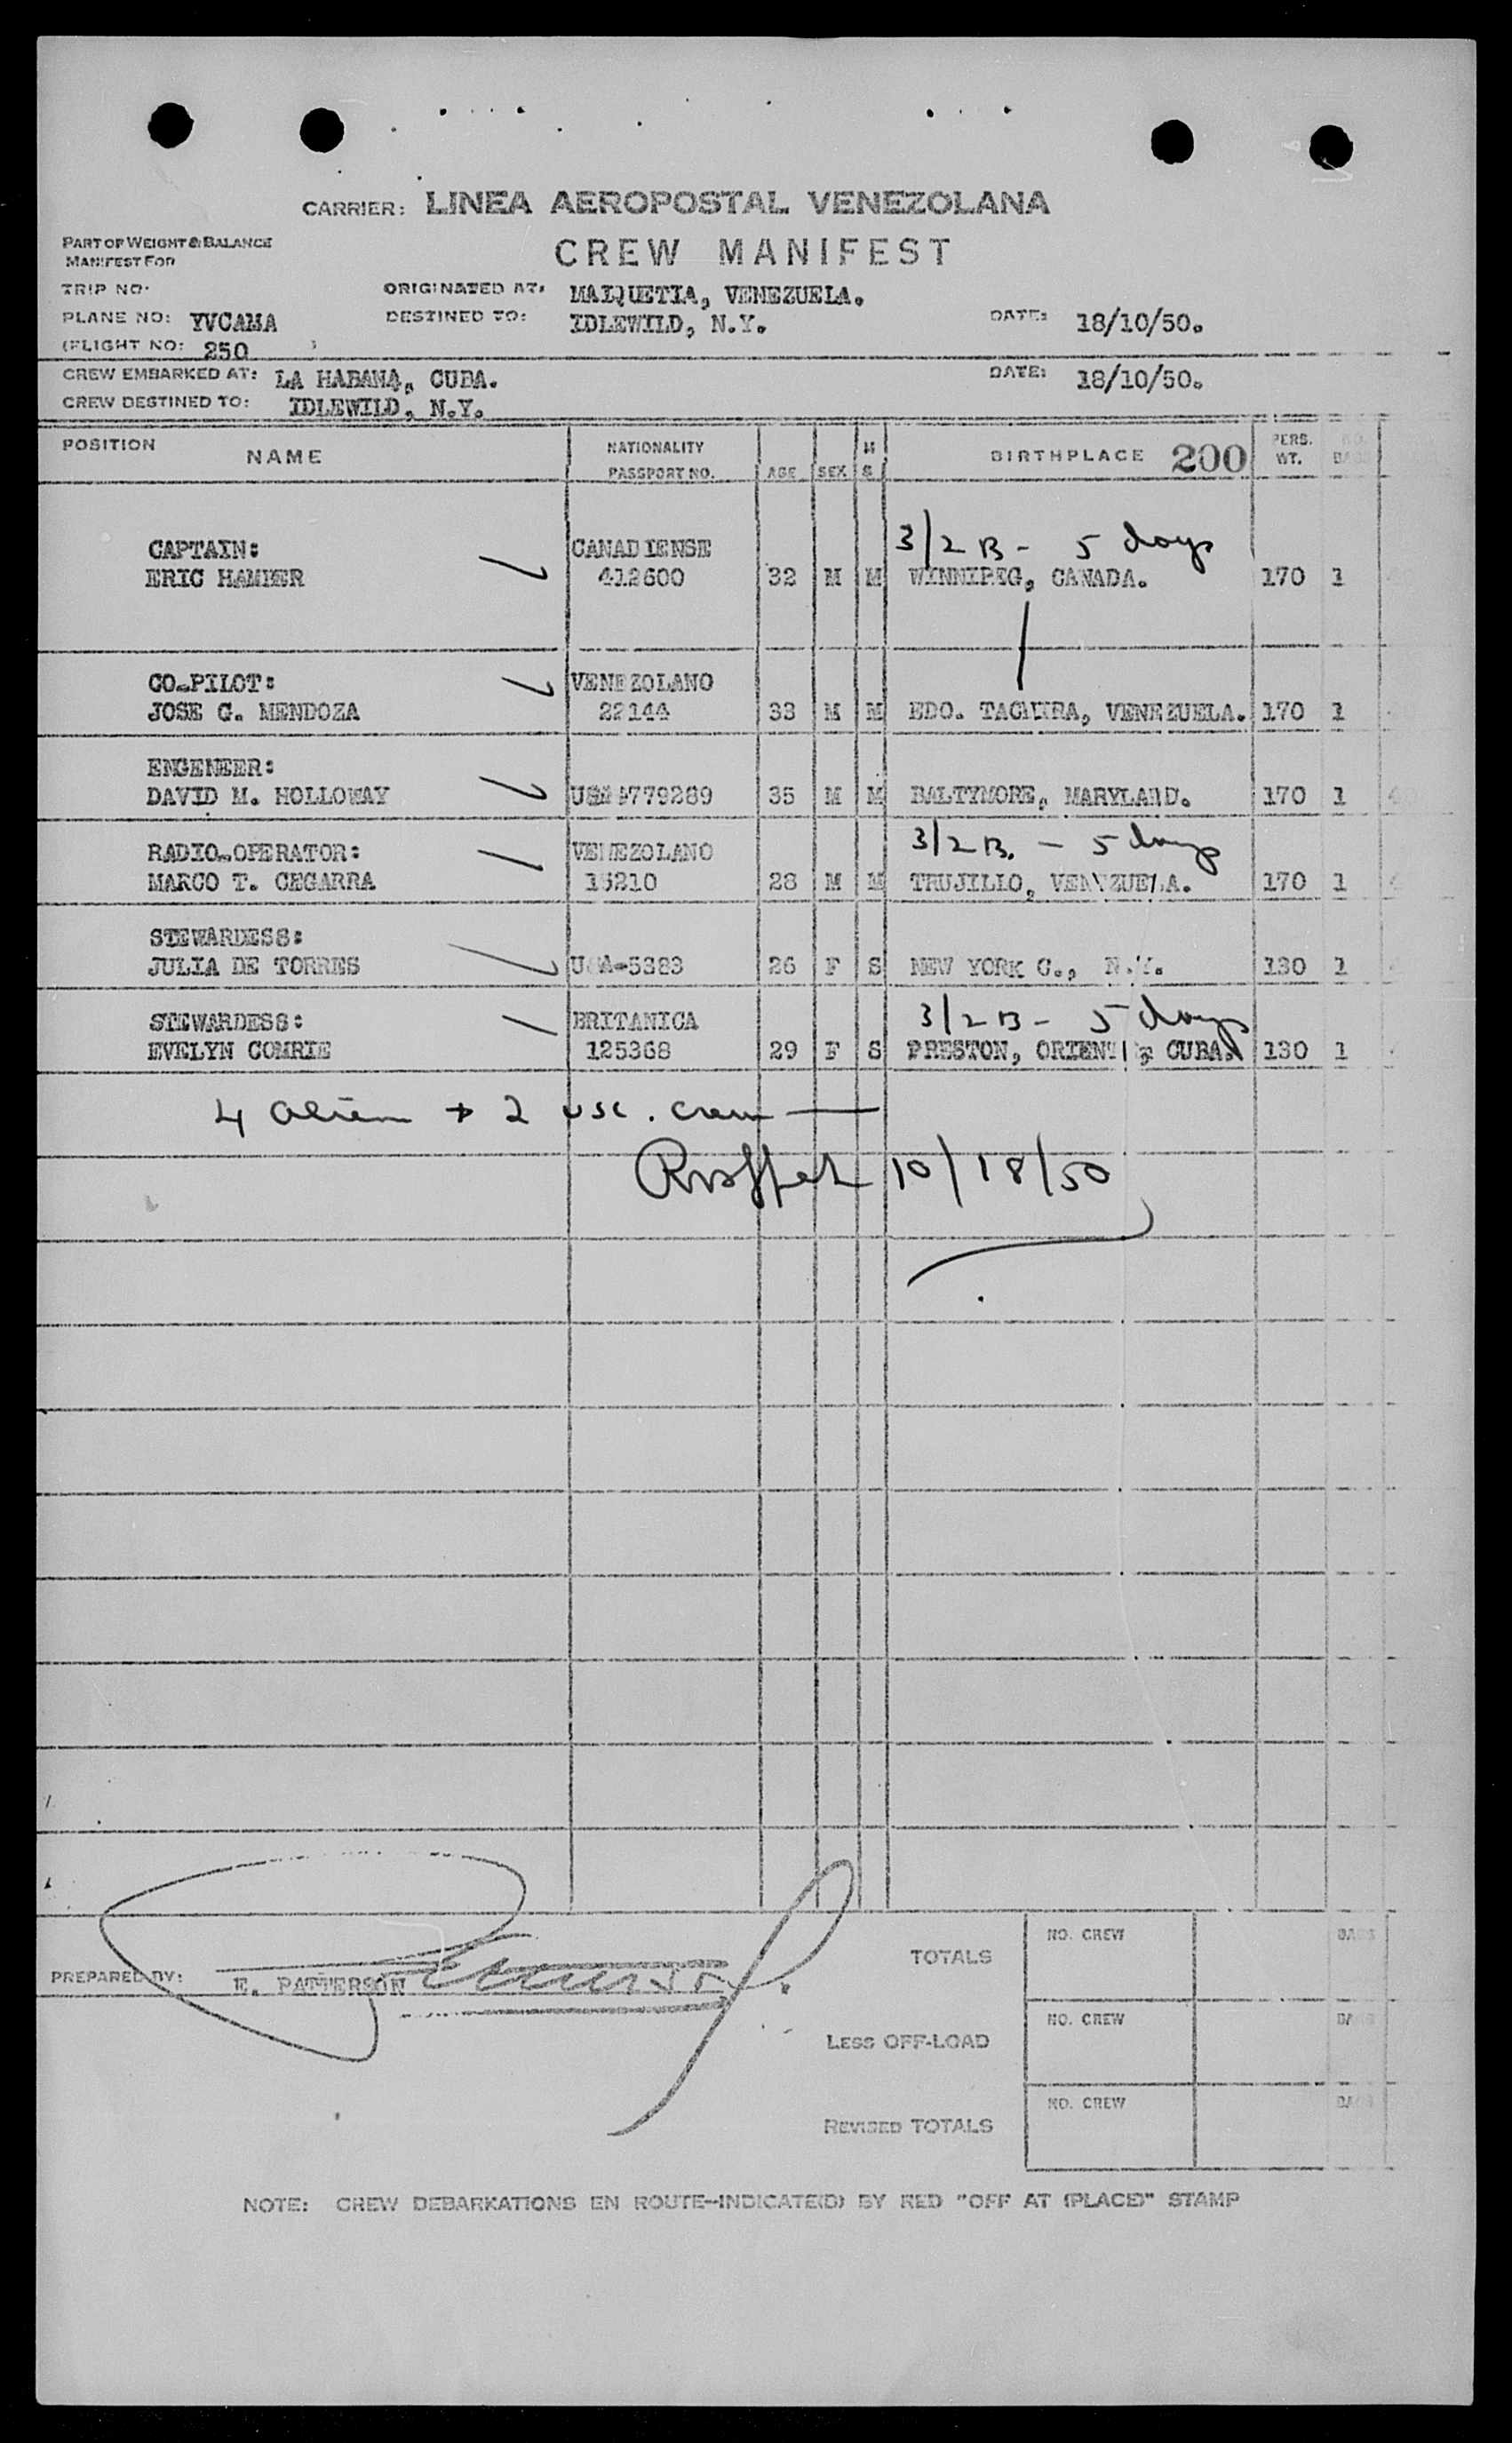 CARRIER: LINEA AEROPOSTAL VENEZOLANA
PART OF WEIGHT & BALANCE
MANIFEST FOR
CREW MANIFEST
TRIP NO.
ORIGINATED AT: MAIQUETIA, VENEZUELA.
PLANE NO: YVCAMA
DESTINED TO: IDLEWILD, N.Y.
DATE: 18/10/50.
(FLIGHT NO: 250 )
CREW EMBARKED AT: LA HABANA, CUBA.
DATE: 18/10/50.
CREW DESTINED TO: IDLEWILD, N.Y.
POSITION NAME NATIONALITY PASSPORT NO. AGE SEX M S BIRTHPLACE 200 PERS. WT. NO.
3/2 B - 5 days
CAPTAIN: CANADIENSE
ERIC HAMBER 412600 32 M M WINNIPEG, CANADA. 170 1
CO-PILOT: VENEZOLANO
JOSE G. MENDOZA 22144 33 M M EDO. TACHIRA, VENEZUELA. 170 1
ENGENEER:
DAVID M. HOLLOWAY 9779289 35 M M BALTYMORE, MARYLAND. 170 1
3/2 B. - 5 days
RADIO-OPERATOR: VENEZOLANO
MARCO T. CEGARRA 15210 28 M M TRUJILLO, VENEZUELA. 170 1
STEWARDESS:
JULIA DE TORRES USA-5383 26 F S NEW YORK C., N.Y. 130 1
3/2 B - 5 days
STEWARDESS: BRITANICA
EVELYN COMRIE 125368 29 F S PRESTON, ORIENTE, CUBA. 130 1
4 alien + 2 usc. crew
10/18/50
PREPARED BY: E. PATTERSON
TOTALS NO. CREW
LESS OFF-LOAD NO. CREW
REVISED TOTALS NO. CREW
NOTE: CREW DEBARKATIONS EN ROUTE-INDICATE(D) BY RED "OFF AT (PLACE)" STAMP